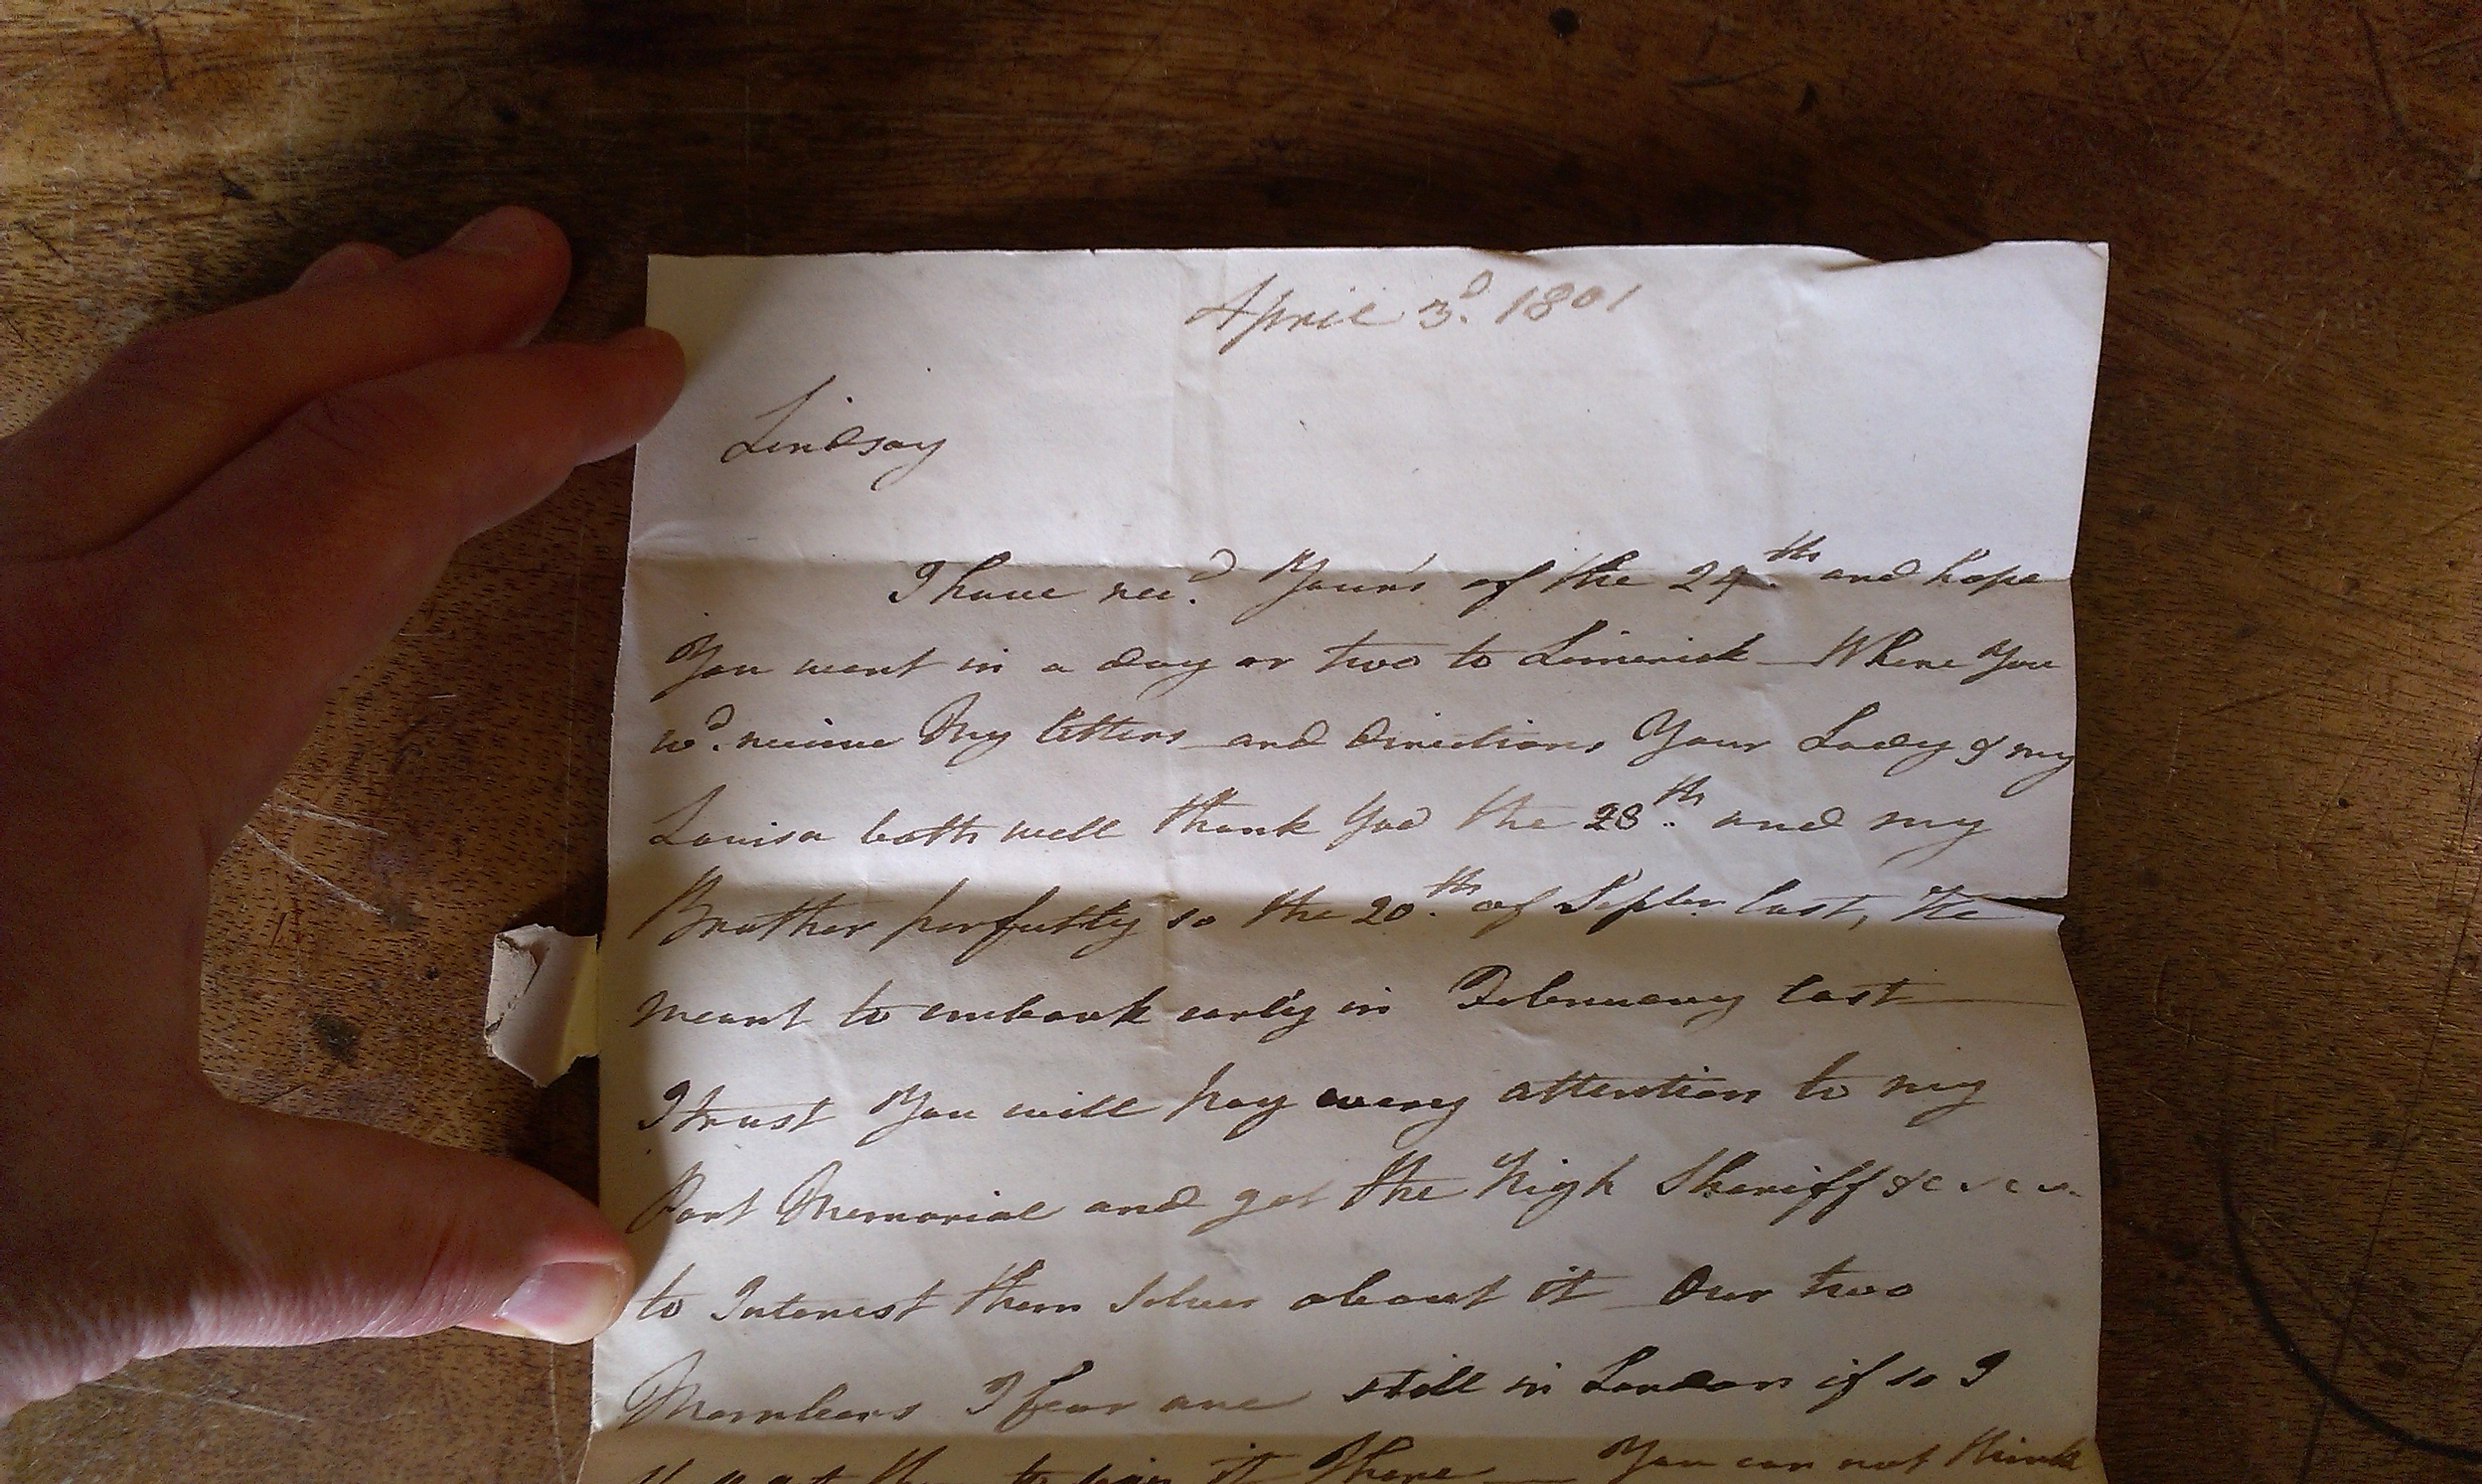 April 3d. 1801
Lindsay
I have recd. Your's of the 24th. and hope
You went in a day or two to Limerick - Where You
wd. receive My letters and directions Your Lady & my
Louisa both well thank God the 28th. and my
Brother perfectly so the 20th. of Septber last, He
meant to embark early in February last
I trust You will pay every attention to my
Port Memorial and get the high Sheriff &c
to Interest them selves about it Our two
Members I fear are still in London if so I
it there You can not think